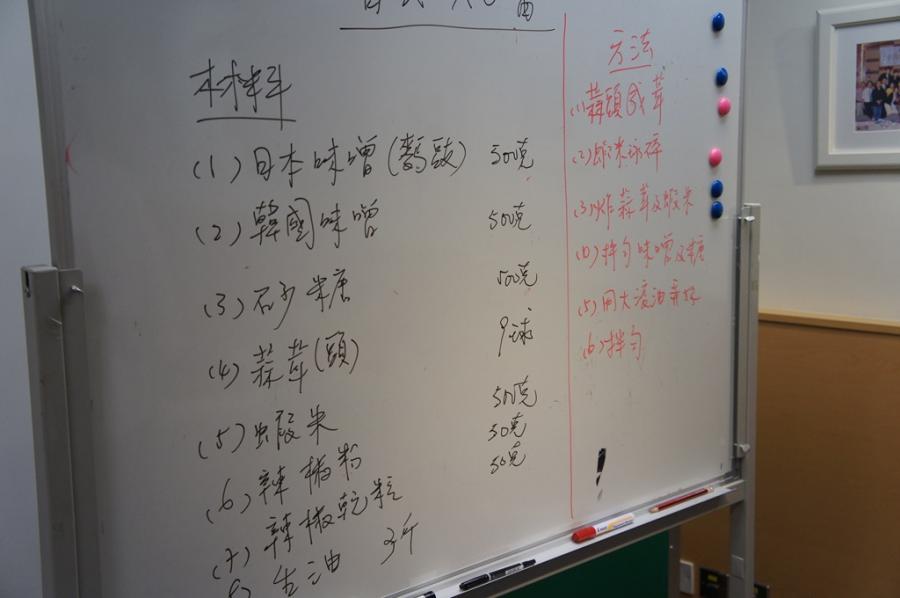 材料
(1) 日本味噌 500克
(2) 韓國味噌 500克
(3) 砂糖 500克
(4) 蒜茸(頭) 9球
(5) 蝦米 500克
(6) 辣椒粉 50克
(7) 辣椒乾粒 50克
生油 3斤
方法
(1) 蒜頭成茸
(2) 蝦米
(3) 炸蒜茸及蝦米
拌勻味噌及糖
(5) 用大滾油
(6) 拌勻
!